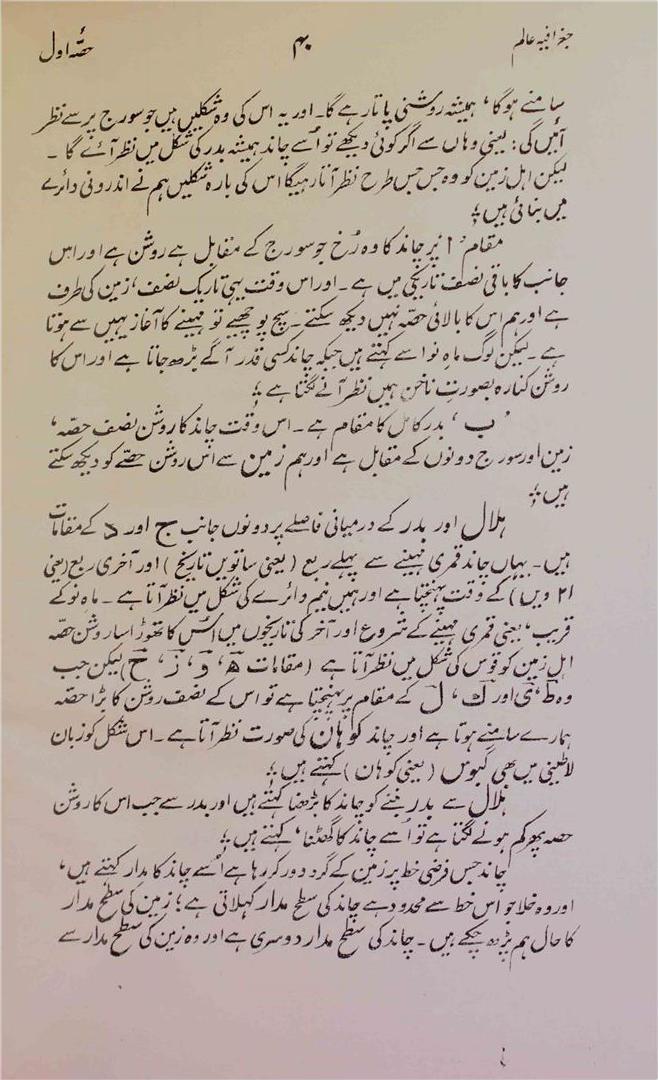 جغرافیہ عالم
۴۰
حصّہ اول
سامنے ہوگا، ہمیشہ روشنی پاتا رہے گا۔ اور یہ اس کی وہ شکلیں ہیں جو سورج پر سے نظر
آئیں گی: یعنی وہاں سے اگر کوئی دیکھے تو اُسے چاند ہمیشہ بدر کی شکل میں نظر آئے گا۔
لیکن اہل زمین کو وہ جس جس طرح نظر آتا رہیگا اس کی بارہ شکلیں ہم نے اندرونی دائرے
میں بنائی ہیں؛
مقام ’ا‘ پر چاند کا وہ رُخ جو سورج کے مقابل ہے روشن ہے اور اس
جانب کا باقی نصف تاریکی میں ہے۔ اور اس وقت یہی تاریک نصف، زمین کی طرف
ہے اور ہم اس کا بالائی حصّہ نہیں دیکھ سکتے۔ سچ پوچھیے تو مہینے کا آغاز یہیں سے ہوتا
ہے۔ لیکن لوگ ماہِ نو اسے کہتے ہیں جبکہ چاند کسی قدر آگے بڑھ جاتا ہے اور اس کا
روشن کنارہ بصورتِ ناخن ہمیں نظر آنے لگتا ہے؛
’ب‘، بدر کامل کا مقام ہے۔ اس وقت چاند کا روشن نصف حصّہ،
زمین اور سورج دونوں کے مقابل ہے اور ہم زمین سے اس روشن حصّے کو دیکھ سکتے
ہیں؛
ہلال اور بدر کے درمیانی فاصلے پر دونوں جانب ج اور د کے مقامات
ہیں۔ یہاں چاند قمری مہینے سے پہلے ربع (یعنی ساتویں تاریخ) اور آخری ربع (یعنی
۲۱ ویں) کے وقت پہنچتا ہے اور ہمیں نیم دائرے کی شکل میں نظر آتا ہے۔ ماہِ نو کے
قریب، یعنی قمری مہینے کے شروع اور آخر کی تاریخوں میں اُس کا تھوڑا سا روشن حصّہ
اہل زمین کو قوس کی شکل میں نظر آتا ہے (مقامات ھ، و، ز، ح) لیکن جب
وہ ط، ی اور ک، ل کے مقام پر پہنچتا ہے تو اس کے نصف روشن کا بڑا حصّہ
ہمارے سامنے ہوتا ہے اور چاند کوہان کی صورت نظر آتا ہے۔ اس شکل کو زبان
لاطینی میں بھی گبوس (یعنی کوہان) کہتے ہیں؛
ہلال سے بدر بننے کو چاند کا بڑھنا کہتے ہیں اور بدر سے جب اس کا روشن
حصہ پھر کم ہونے لگتا ہے تو اُسے چاند کا ’گھٹنا‘ کہتے ہیں؛
چاند جس فرضی خط پر زمین کے گرد دور کر رہا ہے اُسے چاند کا مدار کہتے ہیں،
اور وہ خلا جو اس خط سے محدود ہے چاند کی سطح مدار کہلاتی ہے؛ زمین کی سطح مدار
کا حال ہم پڑھ چکے ہیں۔ چاند کی سطح مدار دوسری ہے اور وہ زمین کی سطح مدار سے